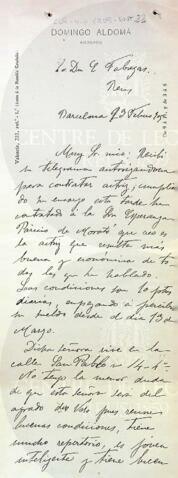 DOMINGO ALDOMÁ
Sr. Dn. E. Fabregas.
Reus
Barcelona 9 Febrero
Muy Sr. mio: Recibí
su telegrama autorizandome
para contratar actriz; cumpliendo
su encargo esta tarde he
contratado á la Sra
de Moreto que creo es
la actriz que resulta más
buena y economica de to-
das las que he hablado.
Las condiciones son 10 ptas
diarias, empezando á percibir
su sueldo desde el dia 13 de
Marzo.
Dicha señora vive en la
calle San Pablo nº 4-4º
No tengo la menor duda
de que esta señora será del
agrado de Vds pues reune
buenas condiciones, tiene
mucho repertorio, es joven
inteligente y tiene buen